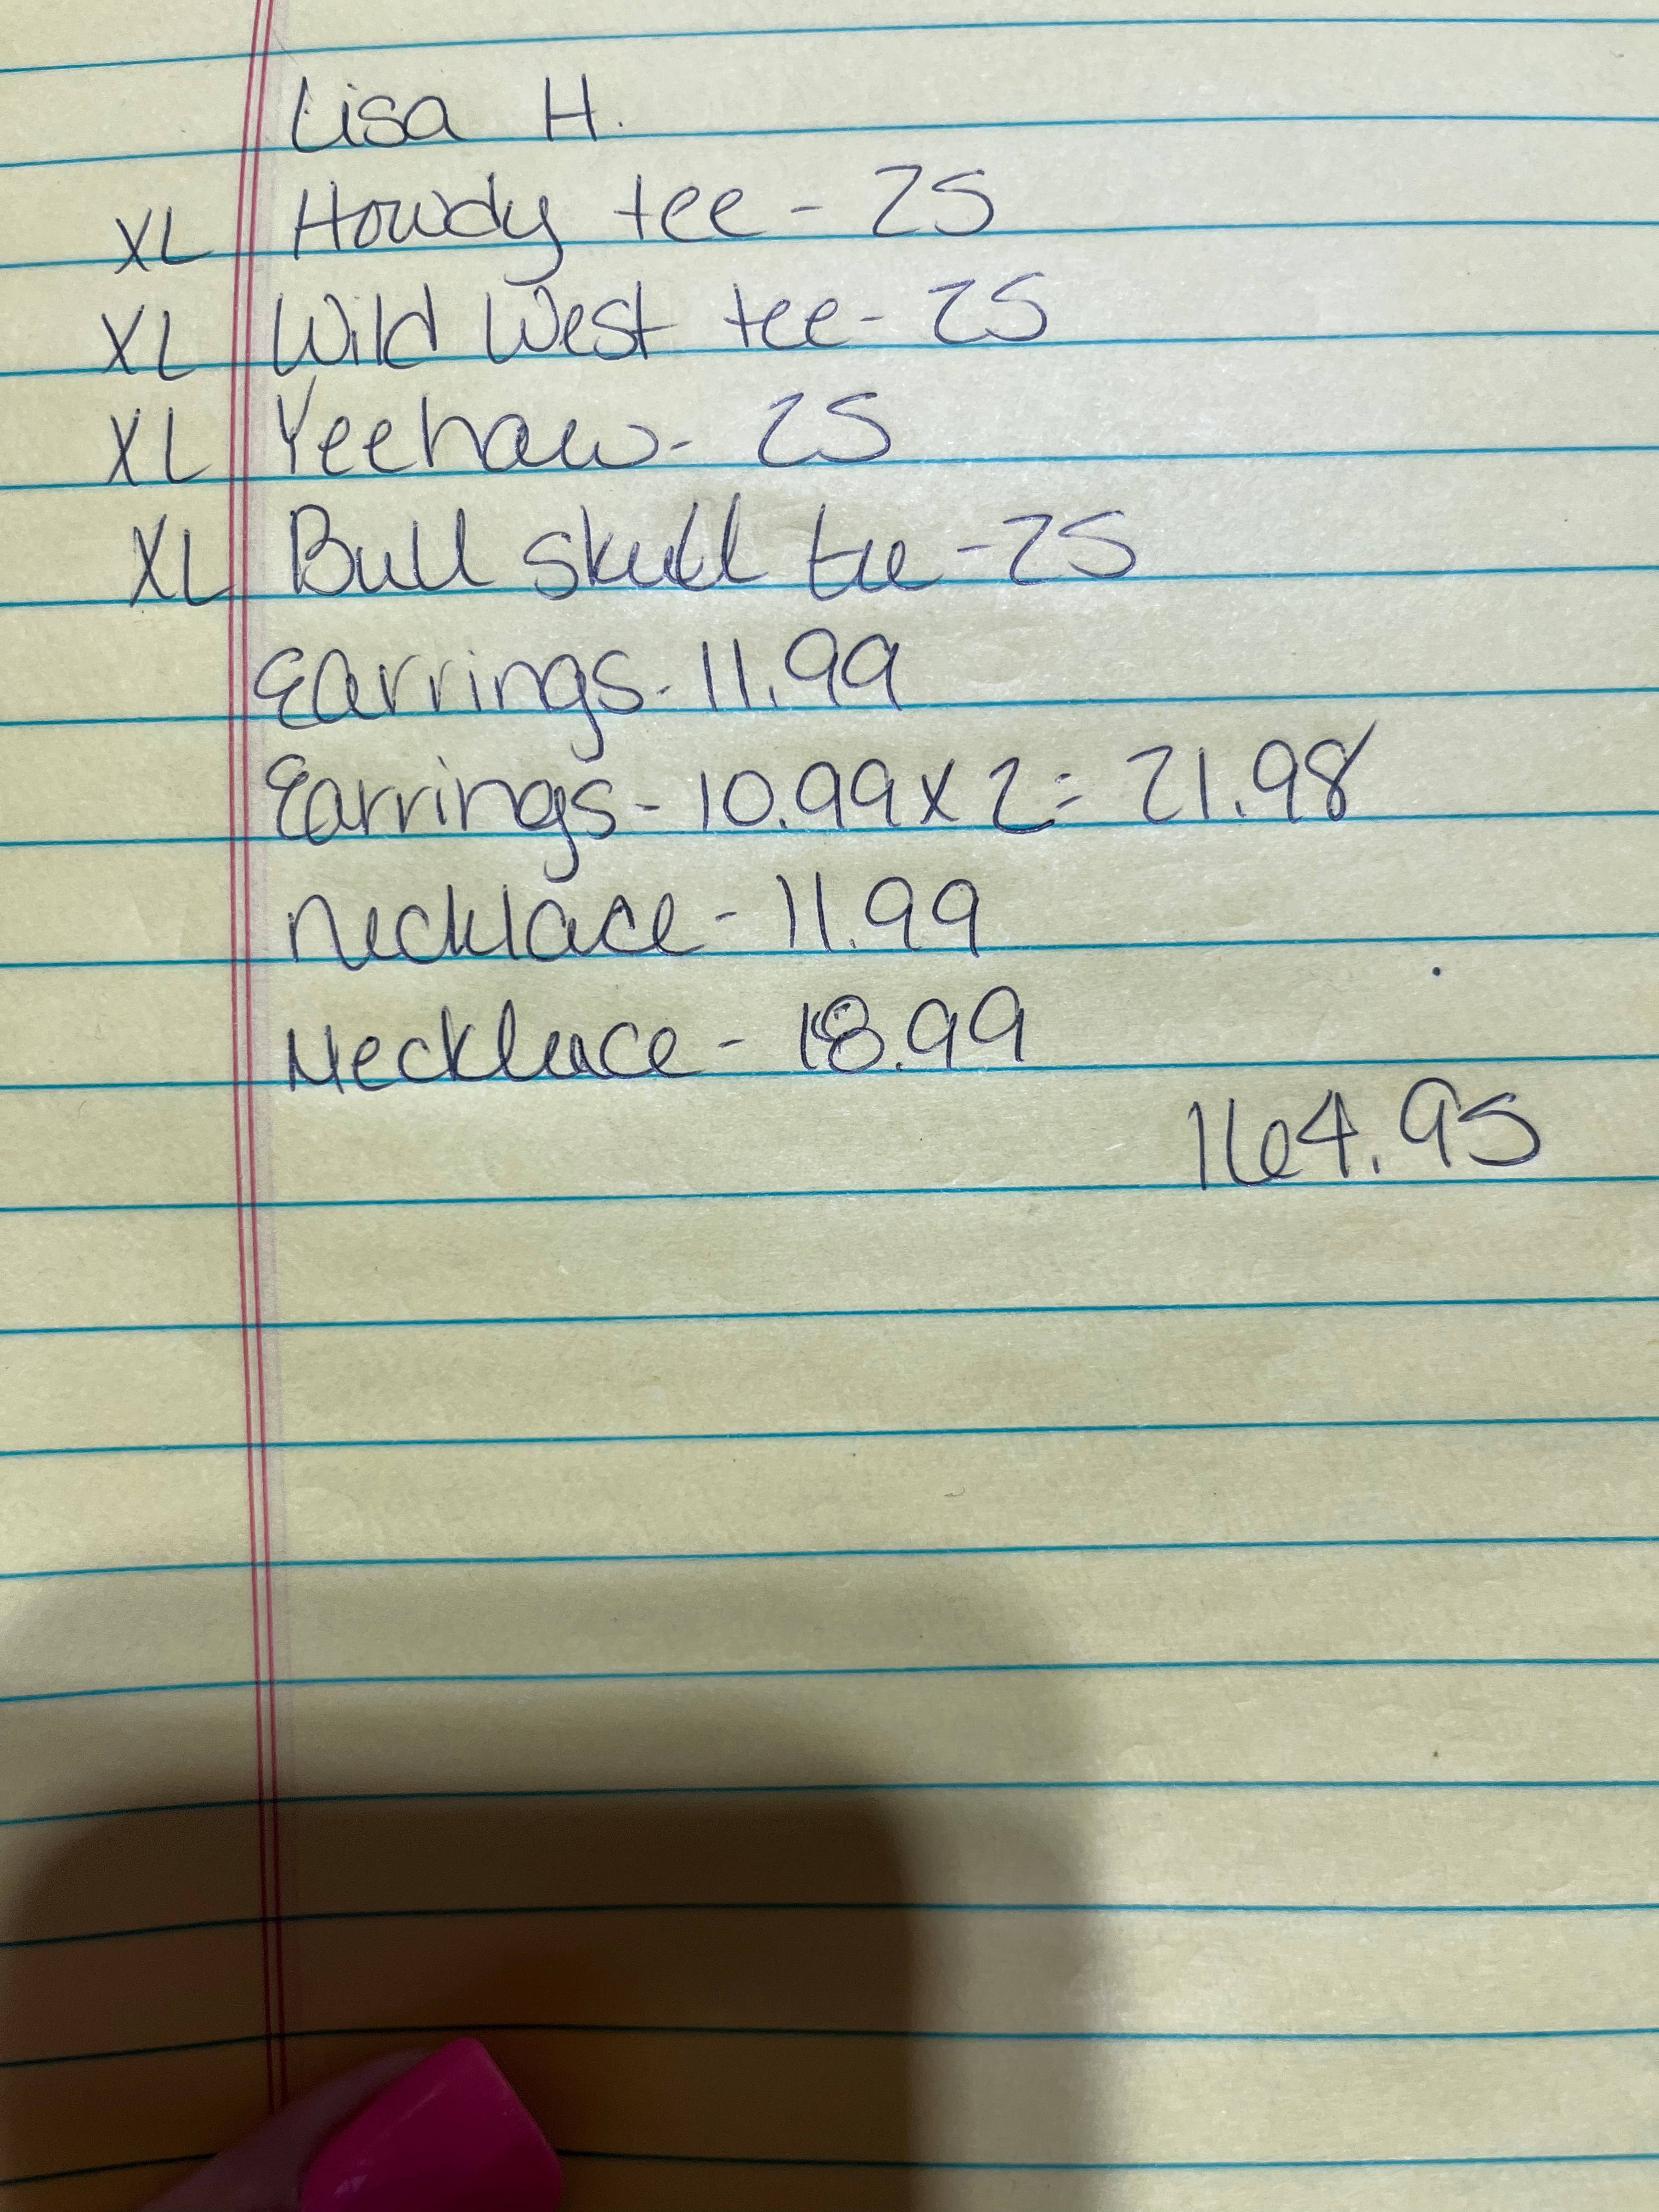 Lisa H.
XL Howdy tee - 25
XL Wild West tee - 25
XL Yeehaw - 25
XL Bull skull tee - 25
Earrings - 11.99
Earrings - 10.99 x 2 = 21.98
Necklace - 11.99
Necklace - 18.99
164.95